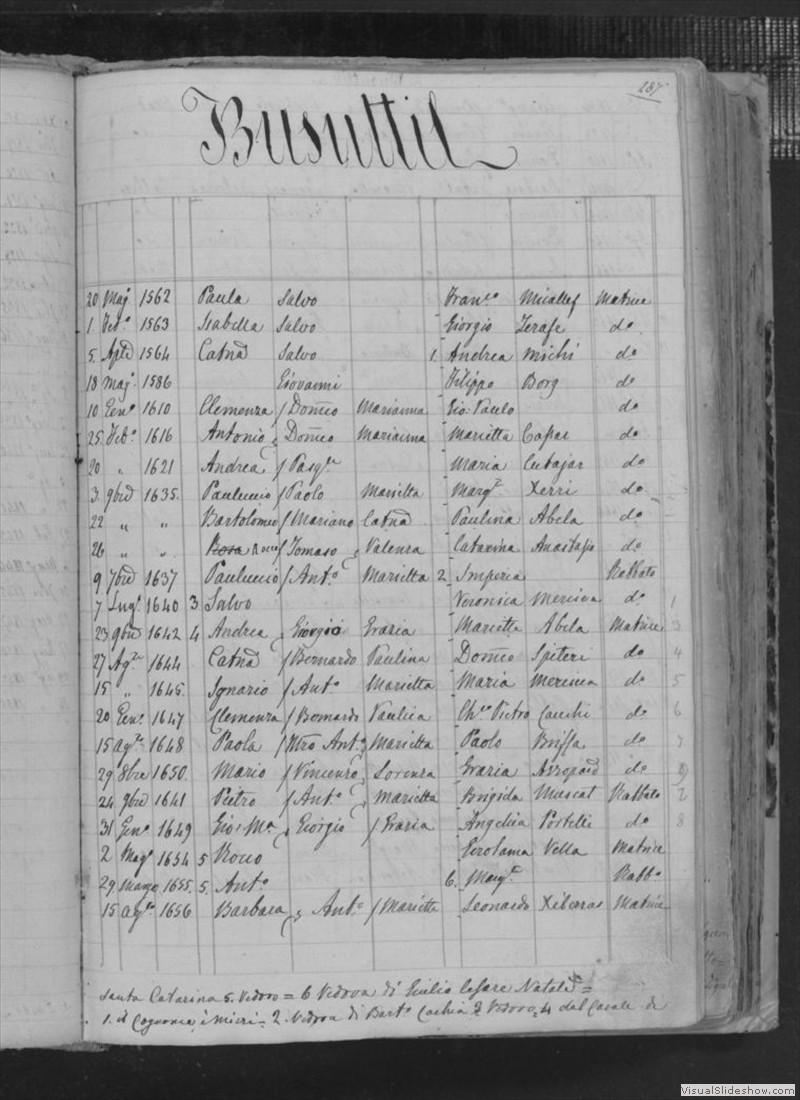 287
Busuttil
20 Maj 1562 Paula Salvo Fran.co Micallef Matrice
1. Feb.o 1563 Isabella Salvo Giorgio Zerafe do
5. Aple 1564 Catna Salvo 1. Andrea Michi do
18 Maj. 1586 Giovanni Filippo Borg do
10 Gen.o 1610 Clemenza / Domco Marianna Gio: Paulo do
25. Feb.o 1616 Antonio Domco Marianna Marietta do
20 " 1621 Andrea / Pasq.le Maria Cutajar do
3. 9bre 1635. Pauluccio / Paolo Marietta Marg.ta Xerri do
22 " " Bartolomeo / Mariano Catna Paulina Abela do
26 " " Rocco / Tomaso Valenza Catarina Anastasio do
9 7bre 1637 Pauluccio / Ant.o Marietta 2. Imperia Rabbato
7 Lug.o 1640 3 Salvo Veronica Mercieca do 1
23 9bre 1642 4 Andrea Giorgio Grazia Marietta Abela Matrice 3
27 Ag.to 1644 Catna / Bernardo Paulina Domco Spiteri do 4
15 " 1645. Ignazio / Ant.o Marietta Maria do 5
20 Gen.o 1647 Clemenza / Bernardo Paulica Ch.co Pietro do 6
15 ag.to 1648 Paola / Ntro Ant.o Marietta Paolo Briffa do 7
29 8bre 1650. Mario / Vincenzo Lorenza Grazia Azzopardi do 9
24 9bre 1641 Pietro / Ant.o Marietta Brigida Muscat Rabbato 2
31 Gen.o 1649 Gio: Ma Giorgio / Grazia Angelica Portelli do 8
2 Mag.o 1654 5 Rocco Gerolama Vella Matrice
29. Marzo 1655. 5. Ant.o 6. Marg.ta Rabb.o
15 ag.to 1656 Barbara Ant.o / Marietta Leonardo Xiberras Matrice
Santa Catarina 5. Vedovo = 6 Vedova di Giulio Cesare Natoli =
1. il Cognome è Micri = 2. Vedova di Bart.o Cachia 3 Vedovo = 4 del Casale di
VisualSlideshow.com